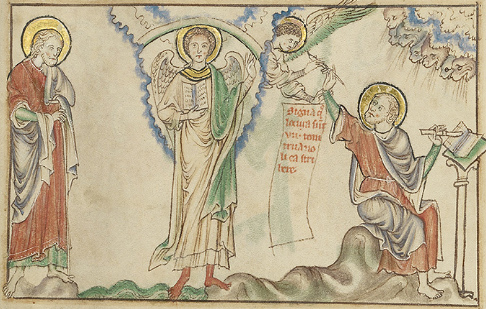 Signa q
locuta sūt
vii. toni
trua no
li ea scri
bere.